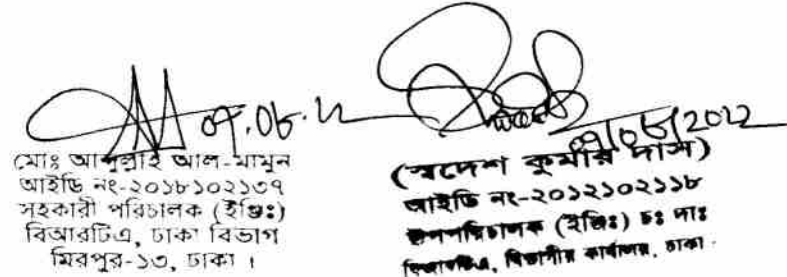 মোঃ আব্দুল্লাহ আল-মামুন
আইডি নং-২০১৮১০২১৩৭
সহকারী পরিচালক (ইঞ্জিঃ)
বিআরটিএ, ঢাকা বিভাগ
মিরপুর-১৩, ঢাকা ।
(স্বদেশ কুমার দাস)
আইডি নং-২০১২১০২১১৮
উপপরিচালক (ইঞ্জিঃ) চঃ দাঃ
বিআরটিএ, বিভাগীয় কার্যালয়, ঢাকা .